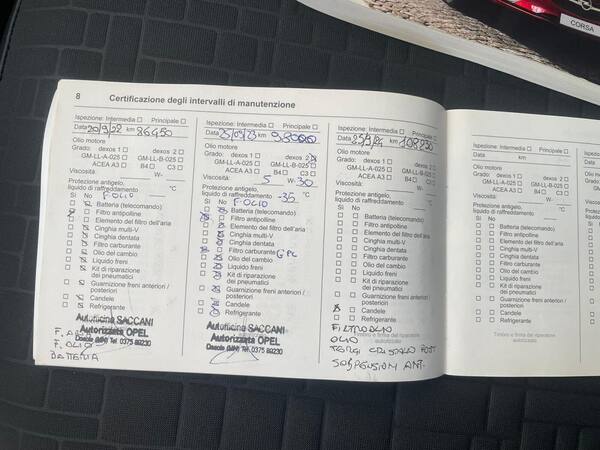 CORSA
8 Certificazione degli intervalli di manutenzione
Ispezione: Intermedia Principale
Data 20/9/22 km 86450
Olio motore
Grado: dexos 1 dexos 2
GM-LL-A-025 GM-LL-B-025
ACEA A3 B4 C3
Viscosità: W-
Protezione antigelo,
liquido di raffreddamento °C
Sì No F. OLIO
Batteria (telecomando)
Filtro antipolline
Elemento del filtro dell'aria
Cinghia multi-V
Cinghia dentata
Filtro carburante
Olio del cambio
Liquido freni
Kit di riparazione
dei pneumatici
Guarnizione freni anteriori /
posteriori
Candele
Refrigerante
Autofficina SACCANI
Autorizzata OPEL
Dosolo (MN) Tel. 0375 89230
F. OLIO
BATTERIA
Ispezione: Intermedia Principale
Data 25/09/23 km 98000
Olio motore
Grado: dexos 1 dexos 2
GM-LL-A-025 GM-LL-B-025
ACEA A3 B4 C3
Viscosità: 5 W-30
Protezione antigelo,
liquido di raffreddamento -35 °C
Sì No F. OLIO
Batteria (telecomando)
Filtro antipolline
Elemento del filtro dell'aria
Cinghia multi-V
Cinghia dentata
Filtro carburante GPL
Olio del cambio
Liquido freni
Kit di riparazione
dei pneumatici
Guarnizione freni anteriori /
posteriori
Candele
Refrigerante
Autofficina SACCANI
Autorizzata OPEL
Dosolo (MN) Tel. 0375 89230
Ispezione: Intermedia Principale
Data km 108830
Olio motore
Grado: dexos 1 dexos 2
GM-LL-A-025 GM-LL-B-025
ACEA A3 B4 C3
Viscosità: W-
Protezione antigelo,
liquido di raffreddamento °C
Sì No
Batteria (telecomando)
Filtro antipolline
Elemento del filtro dell'aria
Cinghia multi-V
Cinghia dentata
Filtro carburante
Olio del cambio
Liquido freni
Kit di riparazione
dei pneumatici
Guarnizione freni anteriori /
posteriori
Candele
Refrigerante
FILTRO OLIO
Timbro e firma del riparatore
autorizzato
OLIO
TERGI CRISTALLO POST
SOSPENSIONI ANT.
Ispezione: Intermedia Principale
Data km
Olio motore
Grado: dexos 1 dexos 2
GM-LL-A-025 GM-LL-B-025
ACEA A3 B4 C3
Viscosità: W-
Protezione antigelo,
liquido di raffreddamento
Sì No
Batteria (telecomando)
Filtro antipolline
Elemento del filtro dell'aria
Cinghia multi-V
Cinghia dentata
Filtro carburante
Olio del cambio
Liquido freni
Kit di riparazione
dei pneumatici
Guarnizione freni anteriori /
posteriori
Candele
Refrigerante
Timbro e firma del riparatore
autorizzato